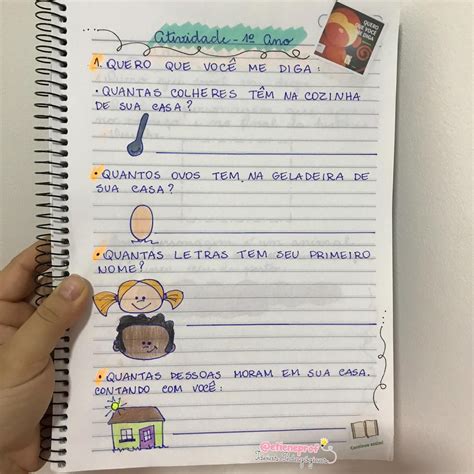 Atividade - 1º Ano
QUERO
QUE VOCÊ
ME DIGA
1. QUERO QUE VOCÊ ME DIGA:
• QUANTAS COLHERES TÊM NA COZINHA
DE SUA CASA?
• QUANTOS OVOS TEM NA GELADEIRA DE
SUA CASA?
• QUANTAS LETRAS TEM SEU PRIMEIRO
NOME?
• QUANTAS PESSOAS MORAM EM SUA CASA.
CONTANDO COM VOCÊ:
@etieneprof